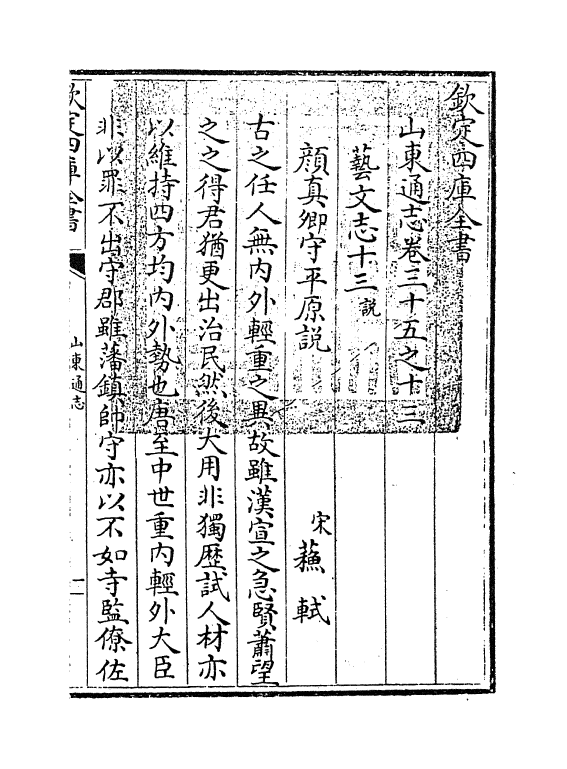 欽定四庫全書
山東通志卷三十五之十三
藝文志十三 說
顔真卿守平原説
宋 蘇軾
古之任人無内外輕重之異故雖漢宣之急賢蕭望
之之得君猶更出治民然後大用非獨歴試人材亦
以維持四方均内外勢也唐至中世重内輕外大臣
非以罪不出守郡雖藩鎮帥守亦以不如寺監僚佐
欽定四庫全書
山東通志
一